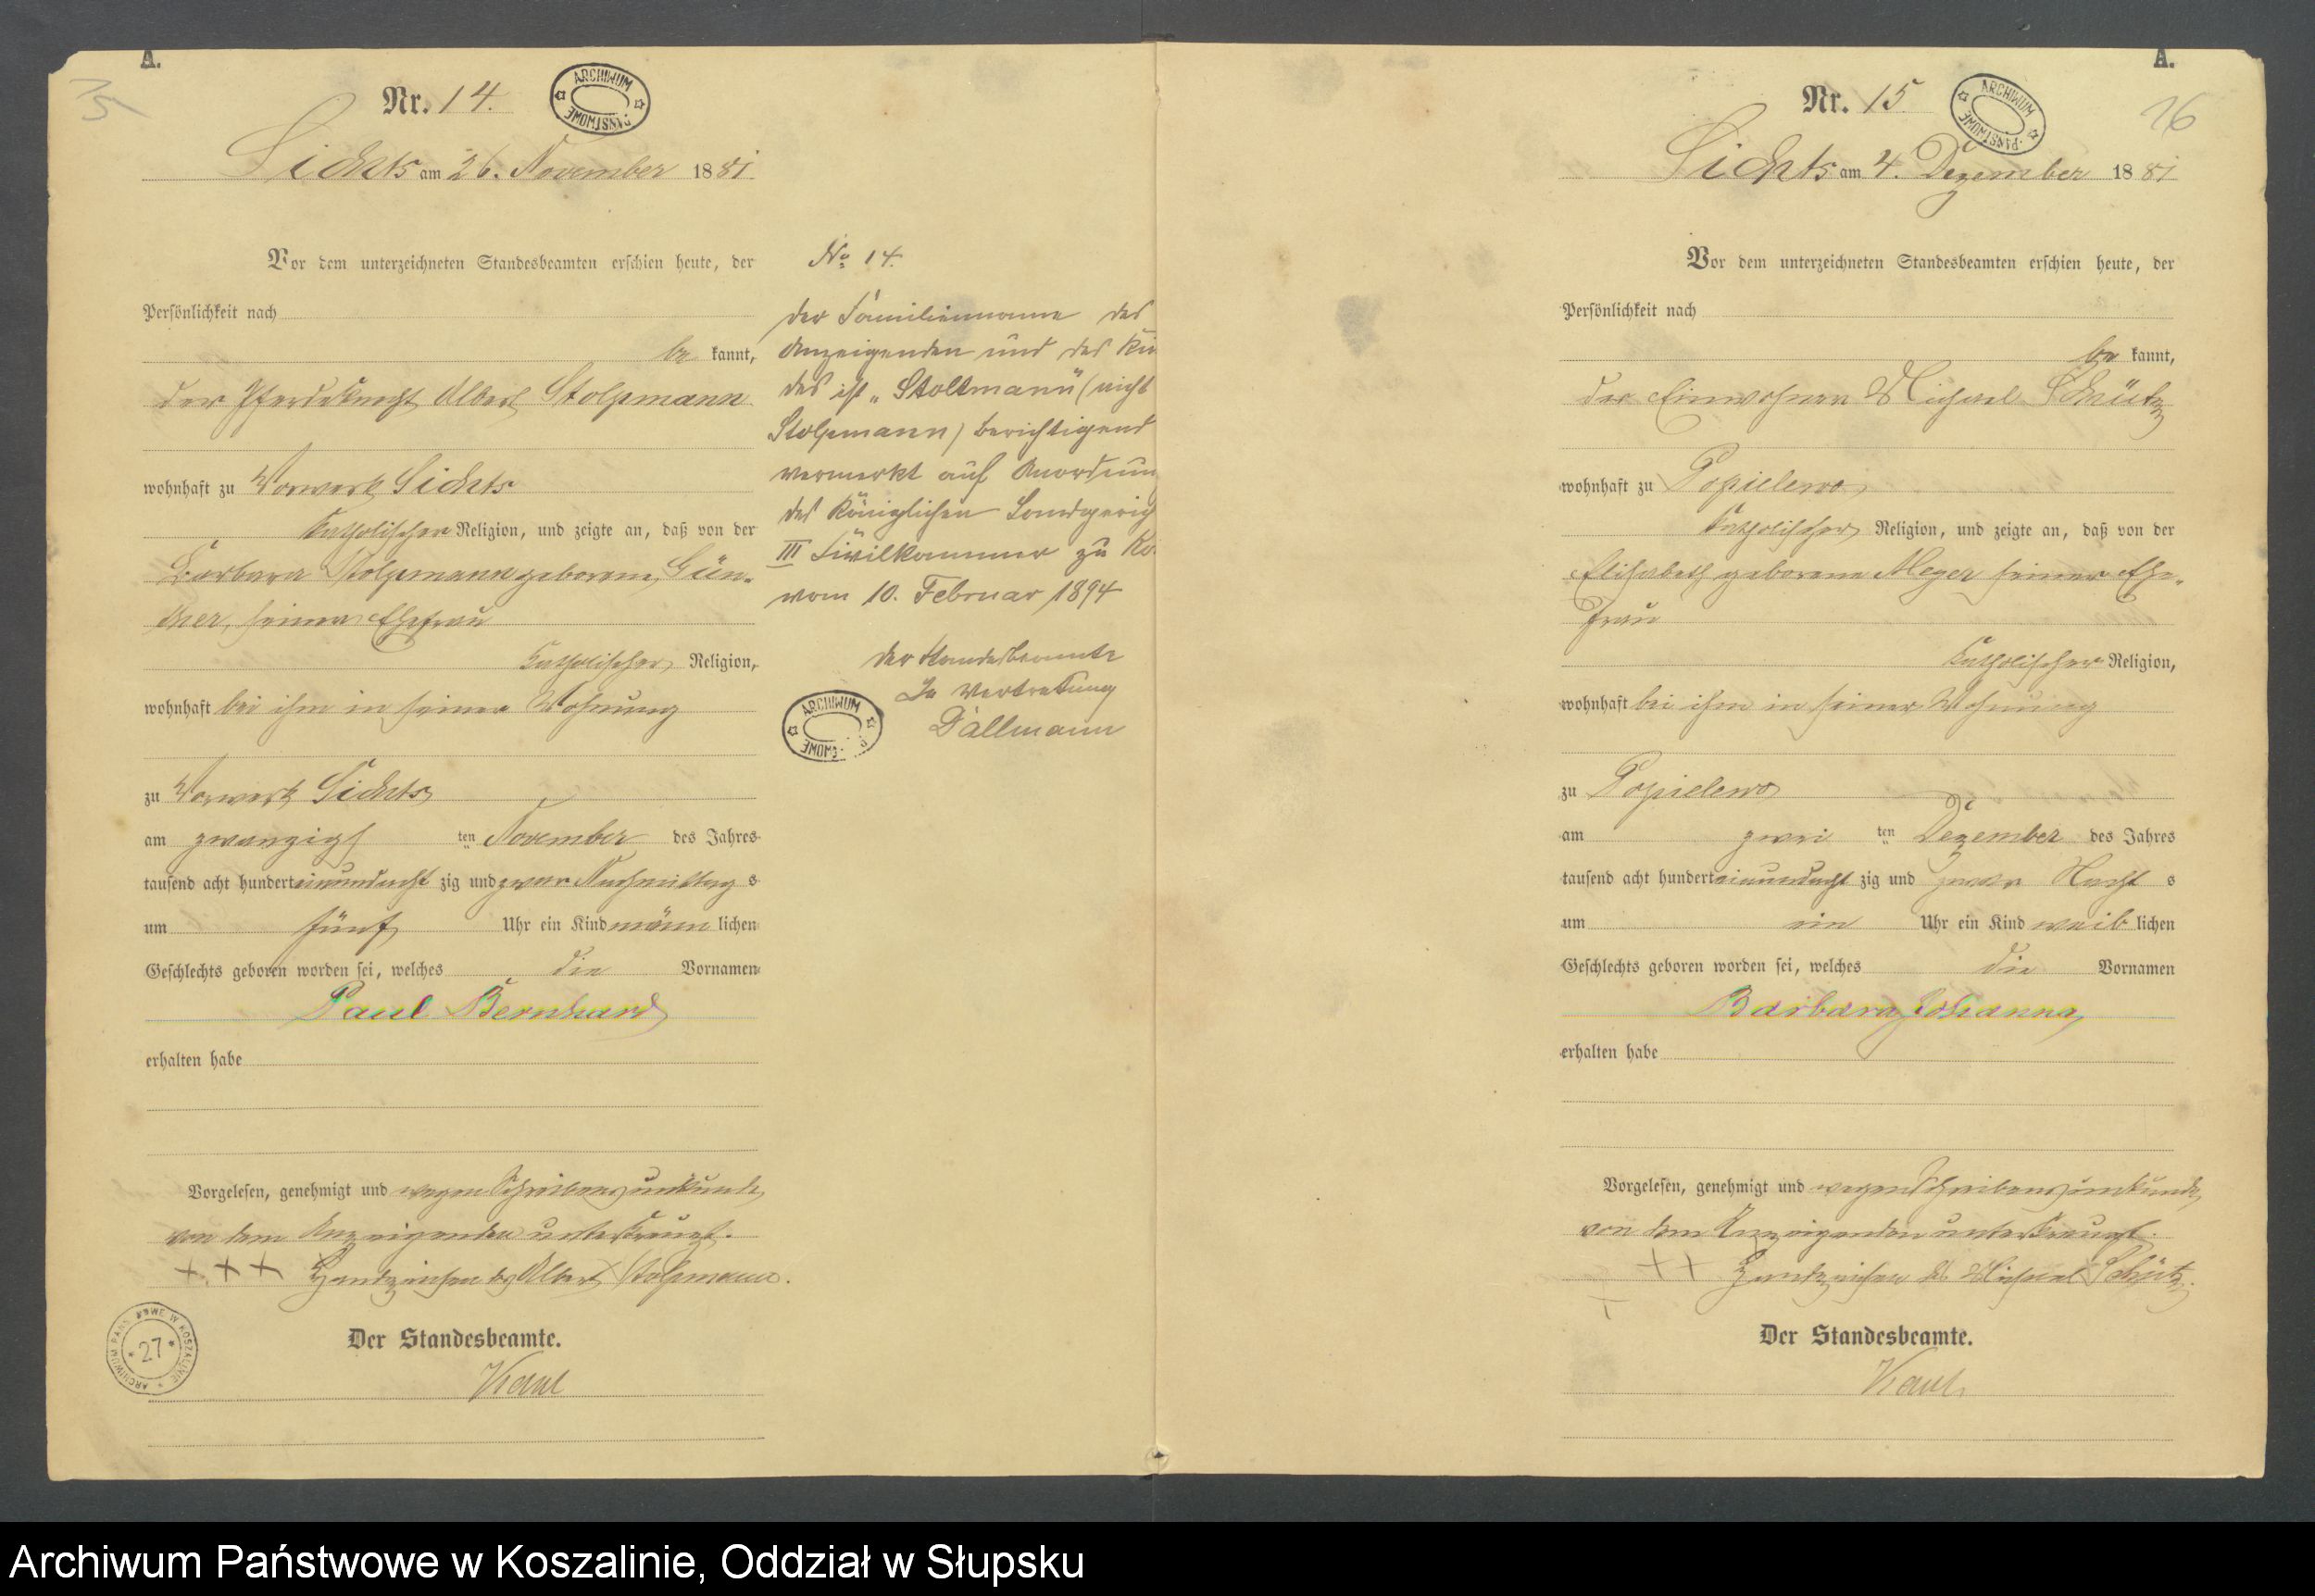 A.
Nr. 14.
ARCHIWUM PAŃSTWOWE
Lichts am 26. November 1881
Vor dem unterzeichneten Standesbeamten erschien heute, der
Persönlichkeit nach
be kannt,
der Pferdeknecht Albert Stolpmann
wohnhaft zu Vorwerk Lichts
katholischer Religion, und zeigte an, daß von der
Barbara Stolpmann geborene Gün-
ther, seiner Ehefrau
katholischer Religion,
wohnhaft bei ihm in seiner Wohnung
zu Vorwerk Lichts
am zwanzigs ten November des Jahres
tausend acht hundert einundacht zig und zwar Nachmittag s
um fünf Uhr ein Kind männ lichen
Geschlechts geboren worden sei, welches die Vornamen
Paul Bernhard
erhalten habe
Vorgelesen, genehmigt und wegen Schreibensunkunde
von dem Anzeigenden unterkreuzt.
+++ Handzeichen des Albert Stolpmann.
Der Standesbeamte.
ARCHIWUM PAŃSTWOWE W KOSZALINIE
27
No 14.
der Familienname des
Anzeigenden und des Kin
des ist „Stoltmann" (nicht
Stolpmann) berichtigend
vermerkt auf Anordnun
des Königlichen Landgerich
III Civilkammer zu Ko
vom 10. Februar 1894
der Standesbeamte
In Vertretung
Dallmann
ARCHIWUM
A.
Nr. 15.
ARCHIWUM PAŃSTWOWE
Lichts am 4. Dezember 1881
Vor dem unterzeichneten Standesbeamten erschien heute, der
Persönlichkeit nach
be kannt,
der Einwohner Michael Schütz
wohnhaft zu Popielewo
katholischer Religion, und zeigte an, daß von der
Elisabeth geborene Meyer seiner Ehe-
frau
katholischer Religion,
wohnhaft bei ihm in seiner Wohnung
zu Popielewo
am zwei ten Dezember des Jahres
tausend acht hundert einundacht zig und zwar Nacht s
um ein Uhr ein Kind weib lichen
Geschlechts geboren worden sei, welches die Vornamen
Barbara Johanna
erhalten habe
Vorgelesen, genehmigt und wegen Schreibensunkunde
von dem Anzeigenden unterkreuzt.
+++ Handzeichen des Michael Schütz.
Der Standesbeamte.
Archiwum Państwowe w Koszalinie, Oddział w Słupsku